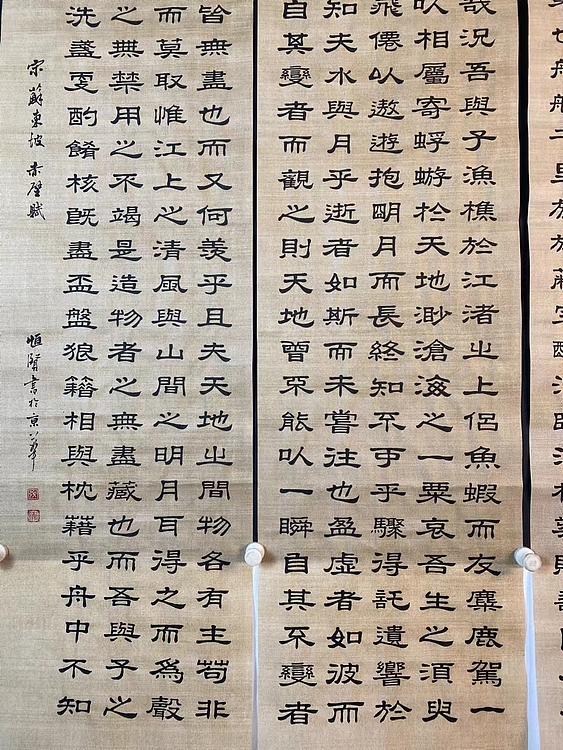 哉況吾與子漁樵於江渚之上侶魚蝦而友麋鹿駕一
以相屬寄蜉蝣於天地渺滄海之一粟哀吾生之須臾
飛僊以遨遊抱明月而長終知不可乎驟得託遺響於
知夫水與月乎逝者如斯而未嘗往也盈虛者如彼而
自其變者而觀之則天地曾不能以一瞬自其不變者
皆無盡也而又何羨乎且夫天地之間物各有主苟非
而莫取惟江上之清風與山間之明月耳得之而為聲
之無禁用之不竭是造物者之無盡藏也而吾與子之
洗盞更酌餚核既盡盃盤狼籍相與枕藉乎舟中不知
宋蘇東坡赤壁賦 書於京華